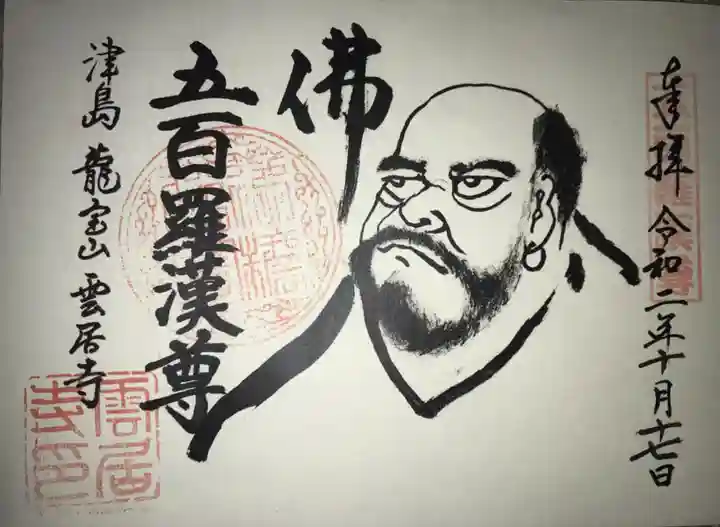 奉拝 令和二年十月十七日
佛
五百羅漢尊
津島 龍宝山 雲居寺